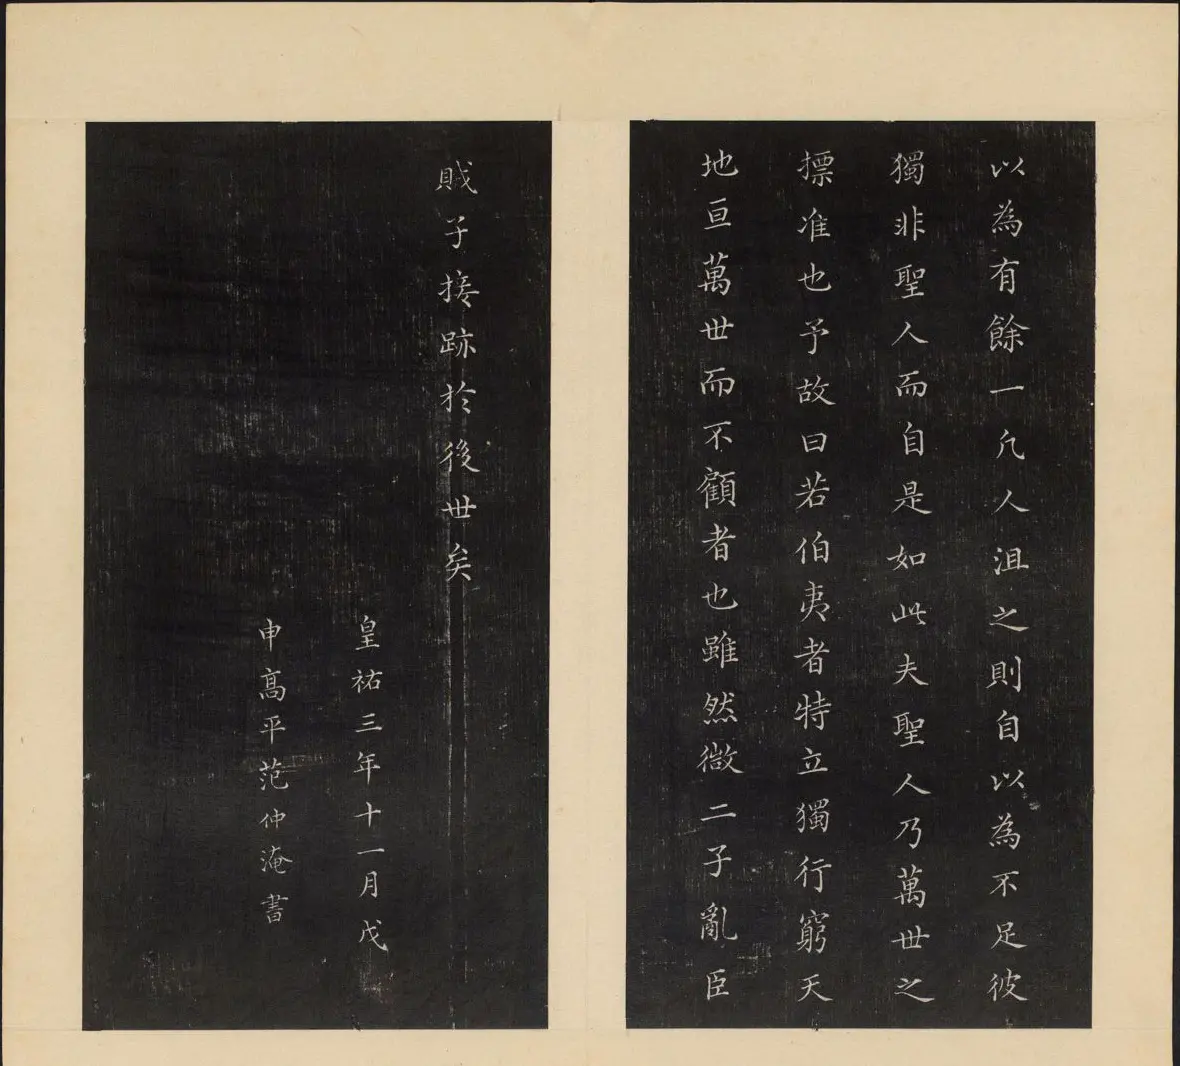 以為有餘一凡人沮之則自以為不足彼
獨非聖人而自是如此夫聖人乃萬世之
摽准也予故曰若伯夷者特立獨行窮天
地亘萬世而不顧者也雖然微二子亂臣
賊子接跡於後世矣
皇祐三年十一月戊
申高平范仲淹書